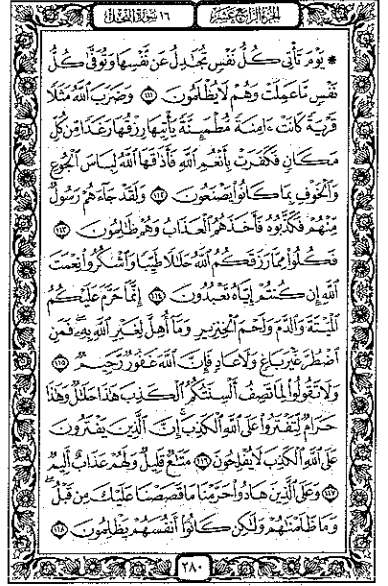 الجزء الرابع عشر
١٦ سورة النحل
۞ يَوْمَ تَأْتِي كُلُّ نَفْسٍ تُجَادِلُ عَن نَّفْسِهَا وَتُوَفَّىٰ كُلُّ
نَفْسٍ مَّا عَمِلَتْ وَهُمْ لَا يُظْلَمُونَ ١١١ وَضَرَبَ اللَّهُ مَثَلًا
قَرْيَةً كَانَتْ ءَامِنَةً مُّطْمَئِنَّةً يَأْتِيهَا رِزْقُهَا رَغَدًا مِّن كُلِّ
مَكَانٍ فَكَفَرَتْ بِأَنْعُمِ اللَّهِ فَأَذَاقَهَا اللَّهُ لِبَاسَ الْجُوعِ
وَالْخَوْفِ بِمَا كَانُوا يَصْنَعُونَ ١١٢ وَلَقَدْ جَاءَهُمْ رَسُولٌ
مِّنْهُمْ فَكَذَّبُوهُ فَأَخَذَهُمُ الْعَذَابُ وَهُمْ ظَالِمُونَ ١١٣
فَكُلُوا مِمَّا رَزَقَكُمُ اللَّهُ حَلَالًا طَيِّبًا وَاشْكُرُوا نِعْمَتَ
اللَّهِ إِن كُنتُمْ إِيَّاهُ تَعْبُدُونَ ١١٤ إِنَّمَا حَرَّمَ عَلَيْكُمُ
الْمَيْتَةَ وَالدَّمَ وَلَحْمَ الْخِنزِيرِ وَمَا أُهِلَّ لِغَيْرِ اللَّهِ بِهِ فَمَنِ
اضْطُرَّ غَيْرَ بَاغٍ وَلَا عَادٍ فَإِنَّ اللَّهَ غَفُورٌ رَّحِيمٌ ١١٥
وَلَا تَقُولُوا لِمَا تَصِفُ أَلْسِنَتُكُمُ الْكَذِبَ هَٰذَا حَلَالٌ وَهَٰذَا
حَرَامٌ لِّتَفْتَرُوا عَلَى اللَّهِ الْكَذِبَ إِنَّ الَّذِينَ يَفْتَرُونَ
عَلَى اللَّهِ الْكَذِبَ لَا يُفْلِحُونَ ١١٦ مَتَاعٌ قَلِيلٌ وَلَهُمْ عَذَابٌ أَلِيمٌ
١١٧ وَعَلَى الَّذِينَ هَادُوا حَرَّمْنَا مَا قَصَصْنَا عَلَيْكَ مِن قَبْلُ
وَمَا ظَلَمْنَاهُمْ وَلَٰكِن كَانُوا أَنفُسَهُمْ يَظْلِمُونَ ١١٨
٢٨٠